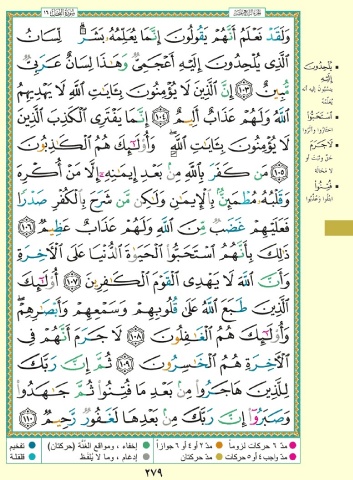 الجزء الرابع عشر
سورة النحل ١٦
وَلَقَدْ نَعْلَمُ أَنَّهُمْ يَقُولُونَ إِنَّمَا يُعَلِّمُهُۥ بَشَرٌ ۗ لِّسَانُ
ٱلَّذِى يُلْحِدُونَ إِلَيْهِ أَعْجَمِىٌّ وَهَـٰذَا لِسَانٌ عَرَبِىٌّ
مُّبِينٌ ١٠٣ إِنَّ ٱلَّذِينَ لَا يُؤْمِنُونَ بِـَٔايَـٰتِ ٱللَّهِ لَا يَهْدِيهِمُ
ٱللَّهُ وَلَهُمْ عَذَابٌ أَلِيمٌ ١٠٤ إِنَّمَا يَفْتَرِى ٱلْكَذِبَ ٱلَّذِينَ
لَا يُؤْمِنُونَ بِـَٔايَـٰتِ ٱللَّهِ ۖ وَأُو۟لَـٰٓئِكَ هُمُ ٱلْكَـٰذِبُونَ
١٠٥ مَن كَفَرَ بِٱللَّهِ مِنۢ بَعْدِ إِيمَـٰنِهِۦٓ إِلَّا مَنْ أُكْرِهَ
وَقَلْبُهُۥ مُطْمَئِنٌّۢ بِٱلْإِيمَـٰنِ وَلَـٰكِن مَّن شَرَحَ بِٱلْكُفْرِ صَدْرًا
فَعَلَيْهِمْ غَضَبٌ مِّنَ ٱللَّهِ وَلَهُمْ عَذَابٌ عَظِيمٌ ١٠٦
ذَٰلِكَ بِأَنَّهُمُ ٱسْتَحَبُّوا۟ ٱلْحَيَوٰةَ ٱلدُّنْيَا عَلَى ٱلْـَٔاخِرَةِ
وَأَنَّ ٱللَّهَ لَا يَهْدِى ٱلْقَوْمَ ٱلْكَـٰفِرِينَ ١٠٧ أُو۟لَـٰٓئِكَ
ٱلَّذِينَ طَبَعَ ٱللَّهُ عَلَىٰ قُلُوبِهِمْ وَسَمْعِهِمْ وَأَبْصَـٰرِهِمْ ۖ
وَأُو۟لَـٰٓئِكَ هُمُ ٱلْغَـٰفِلُونَ ١٠٨ لَا جَرَمَ أَنَّهُمْ فِى
ٱلْـَٔاخِرَةِ هُمُ ٱلْخَـٰسِرُونَ ١٠٩ ثُمَّ إِنَّ رَبَّكَ
لِلَّذِينَ هَاجَرُوا۟ مِنۢ بَعْدِ مَا فُتِنُوا۟ ثُمَّ جَـٰهَدُوا۟
وَصَبَرُوٓا۟ إِنَّ رَبَّكَ مِنۢ بَعْدِهَا لَغَفُورٌ رَّحِيمٌ ١١٠
يُلْحِدُونَ
إِلَيْهِ
ٱسْتَحَبُّوا
اختاروا وآثروا
لَا جَرَمَ
حقّ وثبت أو
لا محالة
فُتِنُوا
ابتلوا وعُذّبوا
مدّ ٦ حركات لزوماً
مدّ ٢ أو ٤ أو ٦ جوازاً
إخفاء، ومواقع الغُنَّة (حركتان)
تفخيم
مدّ واجب ٤ أو ٥ حركات
مدّ حركتان
إدغام، وما لا يُلفَظ
قلقلة
٢٧٩